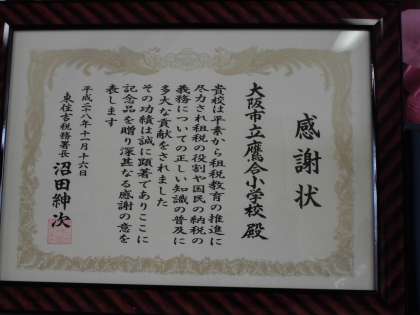 感謝状
大阪市立鷹合小学校 殿
貴校は平素から租税教育の推進に
尽力され租税の役割や国民の納税の
義務についての正しい知識の普及に
多大な貢献をされました
その功績は誠に顕著でありここに
記念品を贈り深甚なる感謝の意を
表します
平成二八年十一月十六日
東住吉税務署長 沼田紳次